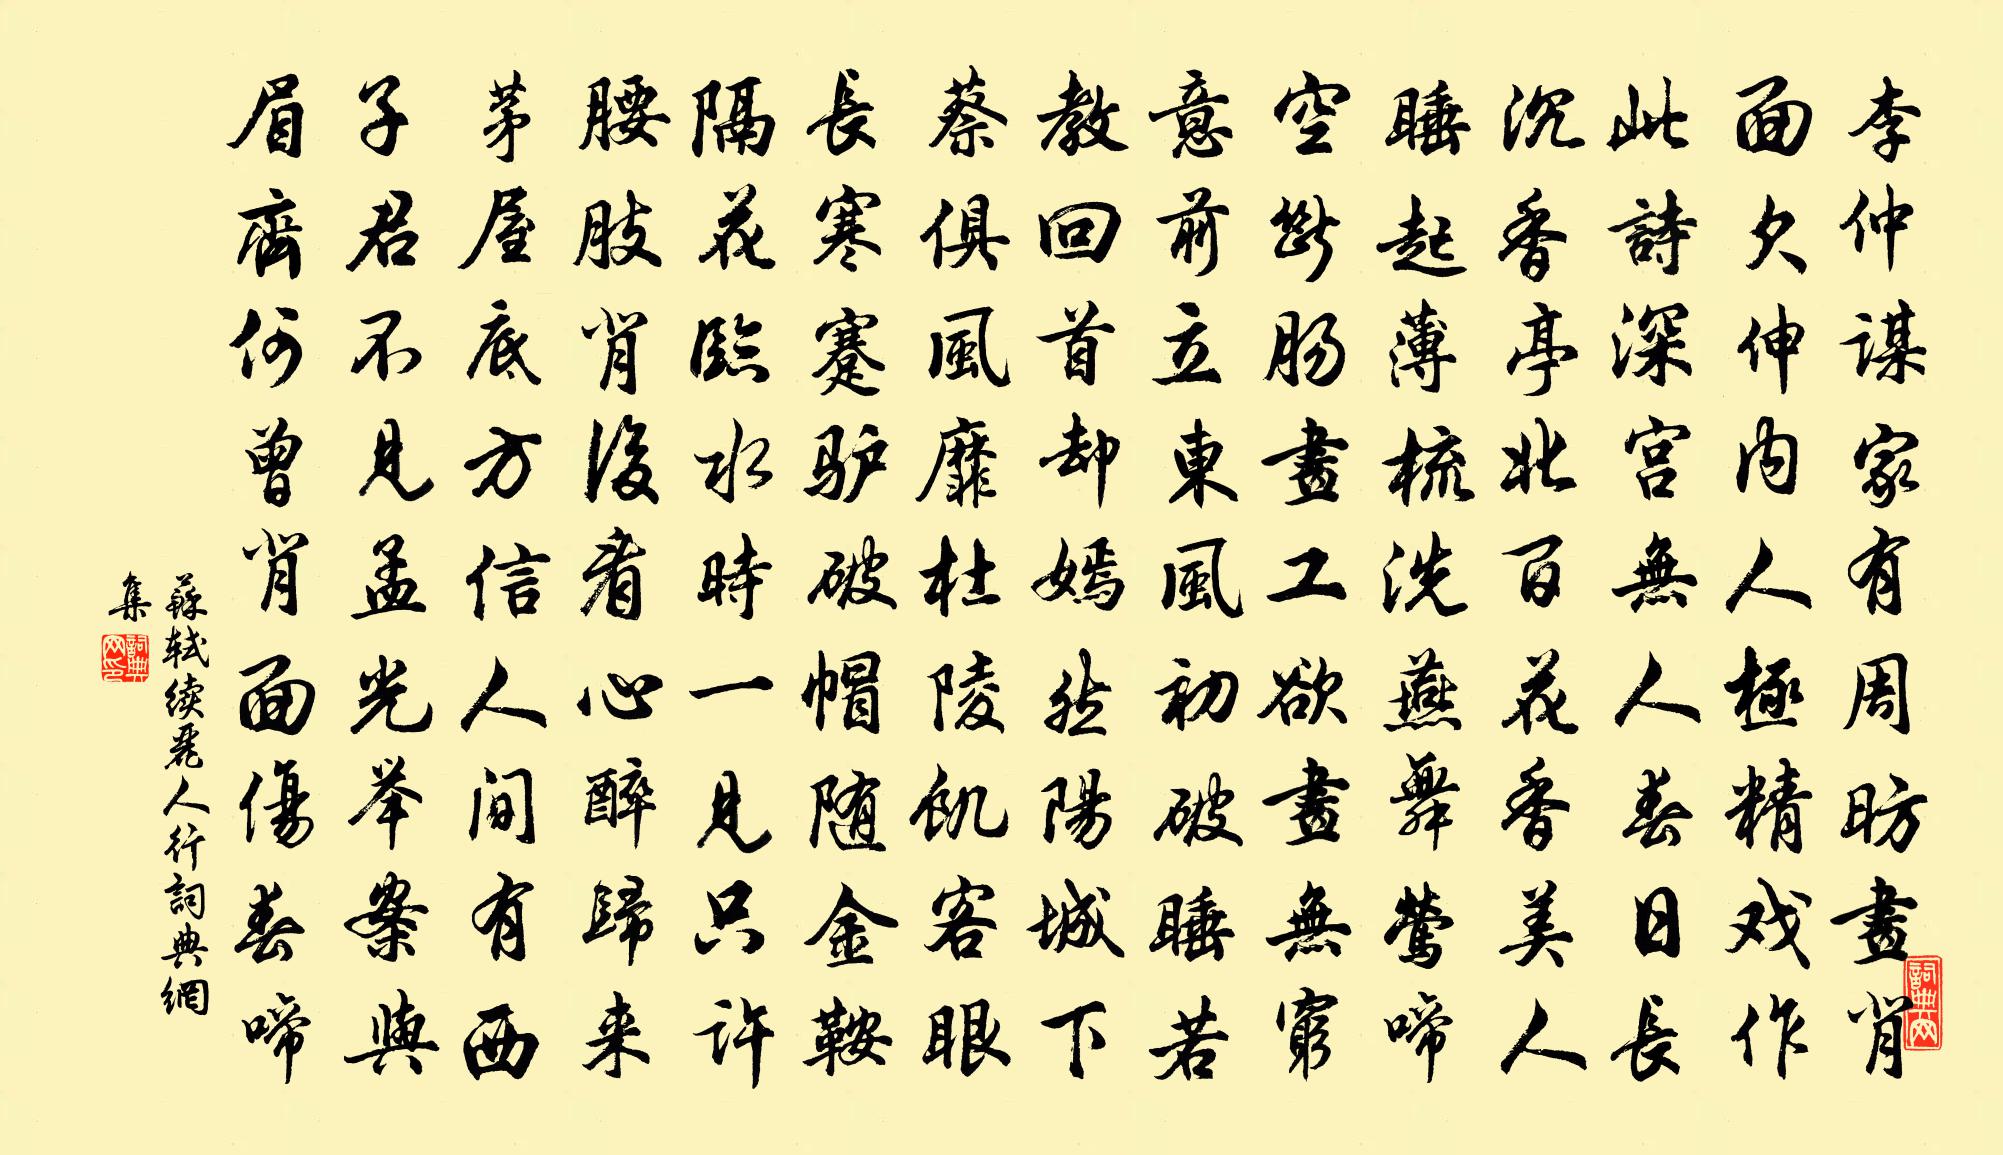 李仲謀家有周昉畫背
面欠伸内人極精戏作
此詩深宫無人春日長
沉香亭北百花香美人
睡起薄梳洗燕舞鶯啼
空斷肠畫工欲畫無窮
意前立東風初破睡若
教回首却嫣然陽城下
蔡俱風靡杜陵飢客眼
長寒蹇驴破帽随金鞍
隔花臨水時一見只許
腰肢背後看心醉歸来
茅屋底方信人间有西
子君不見孟光举案與
眉齊何曾背面傷春啼
蘇轼续麗人行詞典網
集
詞典网
詞典网印